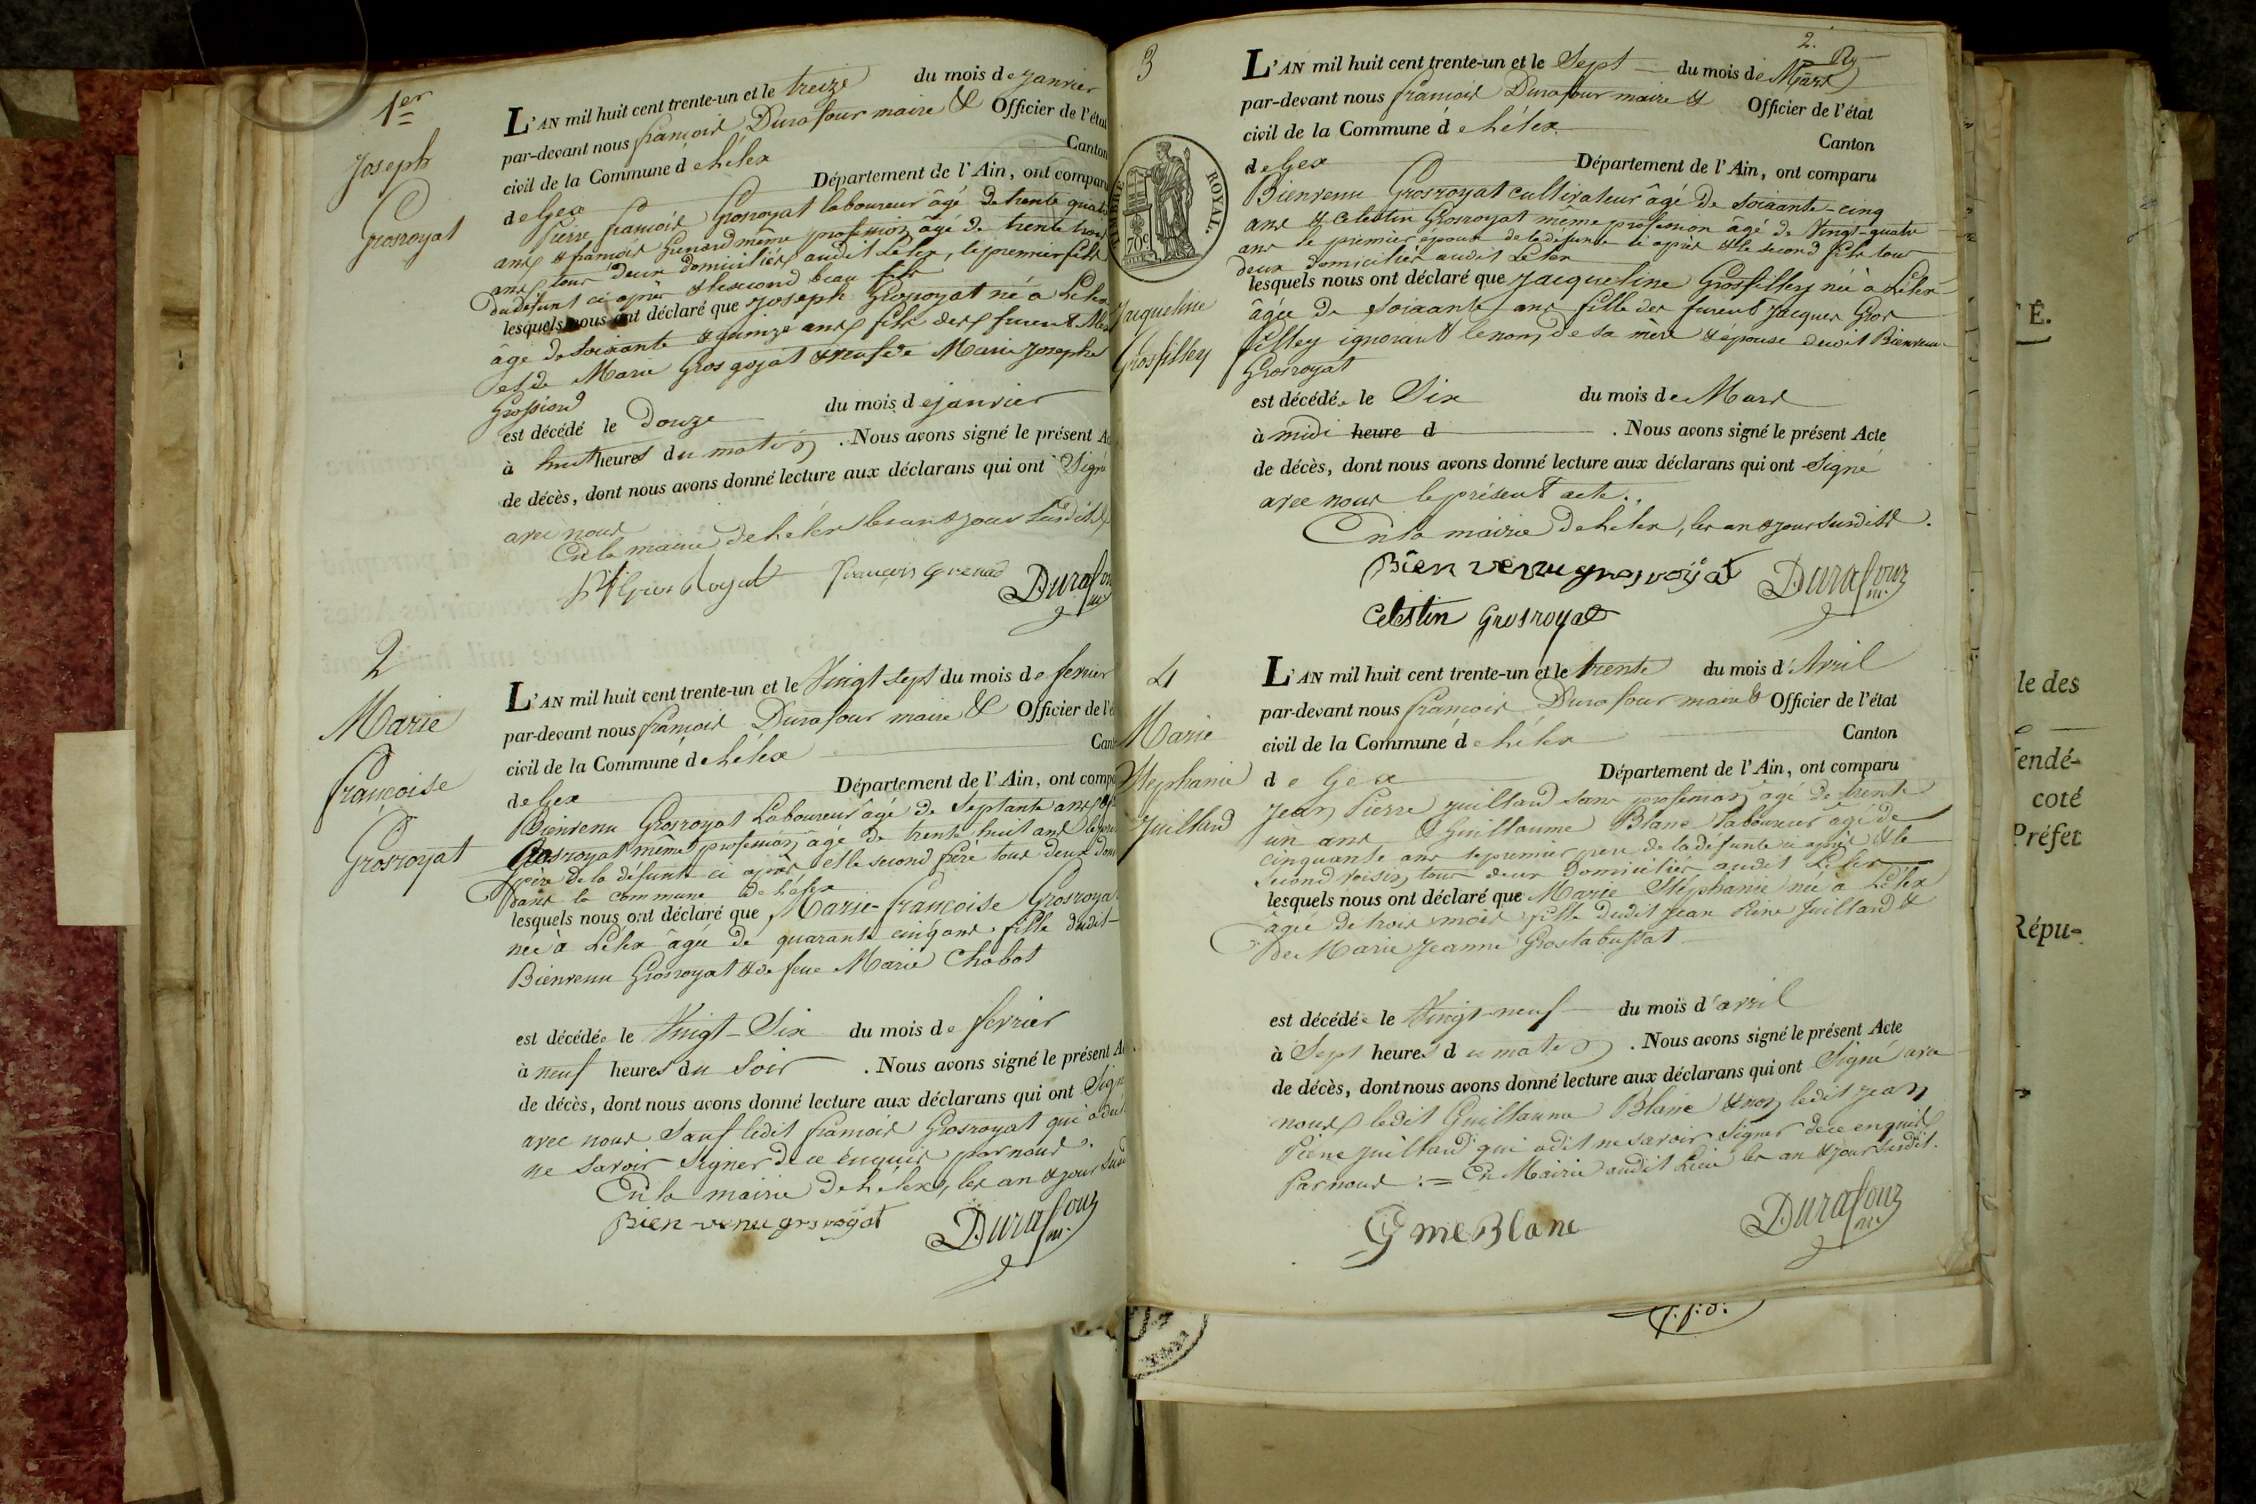 1er
Joseph
Grosroyat
L'AN mil huit cent trente-un et le treize du mois de janvier
par-devant nous françois Durafour maire & Officier de l'état
civil de la Commune de Lélex Canton
de Gex Département de l'Ain, ont comparu
Pierre françois Grosroyat laboureur âgé de trente quatre
ans & françois Grenard même profession âgé de trente trois
ans tous deux domiciliés audit Lelex, le premier fils
du défunt ci après & le second beau fils
lesquels nous ont déclaré que Joseph Grosroyat né à Lelex
âgé de soixante & quinze ans fils des furent
et de Marie Gros goyat & veuf de Marie Josephe
Grossiord
est décédé le Douze du mois de janvier
à huit heures du matin . Nous avons signé le présent Ac
de décès, dont nous avons donné lecture aux déclarans qui ont Signé
avec nous
En la mairie de Lélex les an & jour susdits
françois grenard Durafour
m.
2
Marie
françoise
Grosroyat
L'AN mil huit cent trente-un et le Vingt sept du mois de fevrier
par-devant nous françois Durafour maire & Officier de l'é
civil de la Commune de Lélex Cant
de Gex Département de l'Ain, ont compa
Bienvenu Grosroyat Laboureur âgé de Septante ans &
Grosroyat même profession âgé de trente huit ans le
père de la défunte ci après et le second frère tous deux dom
dans la commune de Lélex
lesquels nous ont déclaré que Marie-françoise Grosroyat
née à Lélex âgée de quarante cinq ans fille dudit
Bienvenu Grosroyat & de feue Marie Chabot
est décédée le Vingt-Six du mois de fevrier
à neuf heures du Soir . Nous avons signé le présent Ac
de décès, dont nous avons donné lecture aux déclarans qui ont Signé
avec nous Sauf ledit françois Grosroyat qui a dit
ne savoir signer de ce enquis par nous.
En la mairie de Lélex, les an & jour susd
Bien venu grosroyat Durafour
m.
2.
3
TIMBRE ROYAL.
70c
Jacqueline
Grosfilley
L'AN mil huit cent trente-un et le Sept du mois de Mars
par-devant nous françois Durafour maire & Officier de l'état
civil de la Commune de Lélex Canton
de Gex Département de l'Ain, ont comparu
Bienvenu Grosroyat cultivateur âgé de soixante-cinq
ans & Celestin Grosroyat même profession âgé de Vingt-quatre
ans le premier époux de la défunte ci après & le second fils tous
deux domiciliés audit Lelex
lesquels nous ont déclaré que Jacqueline Grosfilley née à Lélex
âgée de soixante ans fille des furent Jacques Gros
filley ignorant le nom de sa mère & épouse dudit Bienvenu
Grosroyat
est décédée le Six du mois de Mars
à midi heure d . Nous avons signé le présent Acte
de décès, dont nous avons donné lecture aux déclarans qui ont Signé
avec nous le présent acte..
En la mairie de Lélex, les an & jour susdits.
Bien venu grosroyat Durafour
m.
Celestin Grosroyat
4
Marie
Stephanie
Juilland
L'AN mil huit cent trente-un et le trente du mois d'Avril
par-devant nous françois Durafour maire & Officier de l'état
civil de la Commune de Lélex Canton
de Gex Département de l'Ain, ont comparu
Jean Pierre Juilland sans profession âgé de trente
un ans & Guillaume Blanc laboureur âgé de
cinquante ans le premier père de la défunte ci après & le
second voisin, tous deux domiciliés audit Lelex
lesquels nous ont déclaré que Marie Stéphanie née à Lélex
âgée de trois mois fille dudit Jean Pierre Juilland &
de Marie Jeanne Grostabussat
est décédée le Vingt-neuf du mois d'avril
à Sept heures du matin . Nous avons signé le présent Acte
de décès, dont nous avons donné lecture aux déclarans qui ont Signé avec
nous ledit Guillaume Blanc & non ledit Jean
Pierre Juilland qui a dit ne savoir signer de ce enquis
Par nous := En Mairie audit Lieu les an & jour susdit.
Gme Blanc Durafour
m.
TÉ.
le des
endé-
coté
Préfet
Répu-